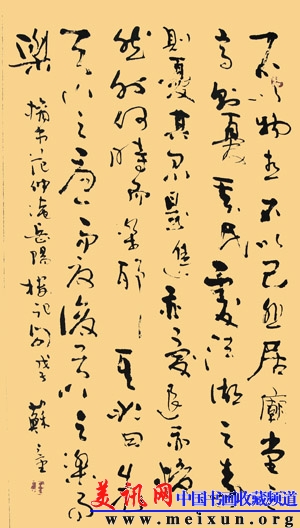 不以物喜不以己悲居廟堂之
高則憂其民處江湖之遠
則憂其君是進亦憂退亦憂
然則何時而樂耶其必曰先
天下之憂而憂後天下之樂而
樂
摘書范仲淹岳陽樓記句 戊子 蘇
美讯网 中国书画收藏频道
www.meixun.org